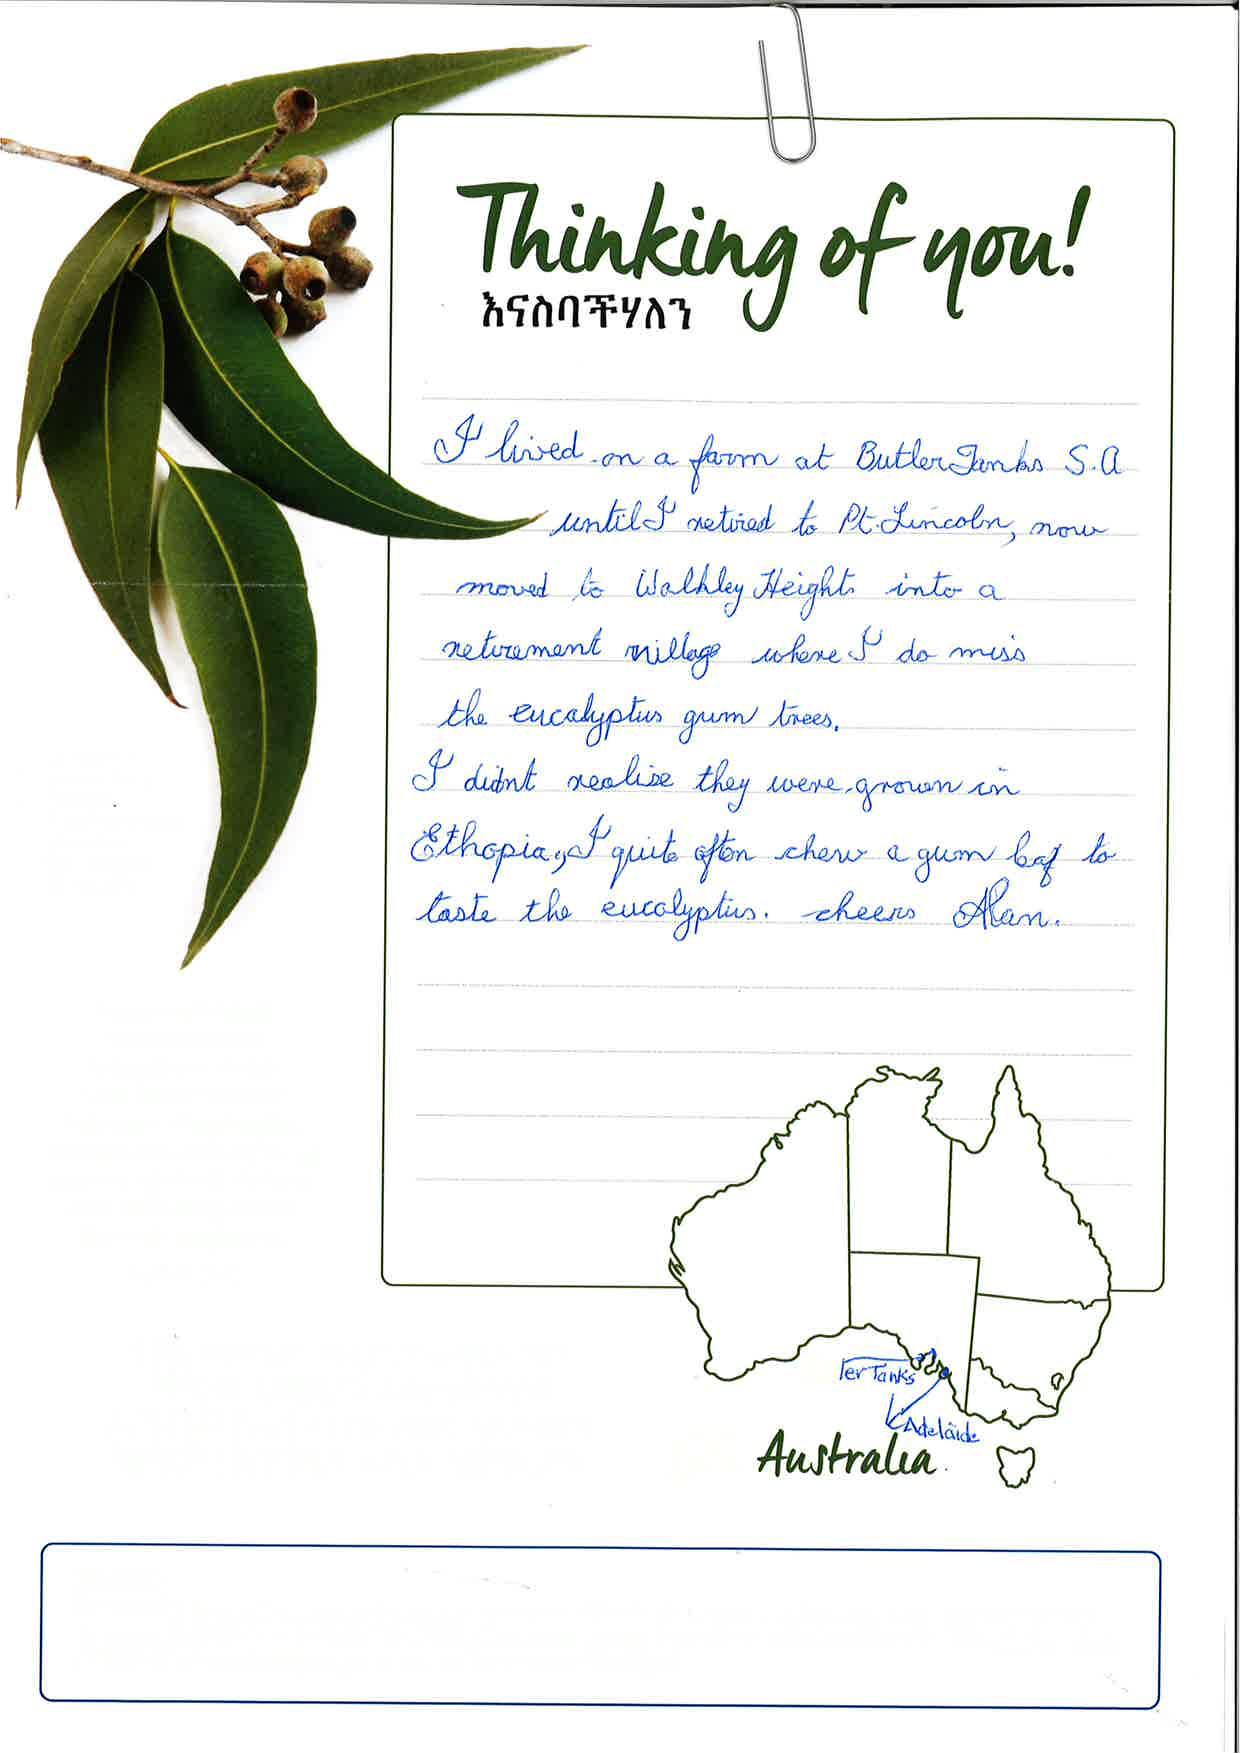 Thinking of you!
እናስባችሃለን
I lived on a farm at Butler Tanks S.A
until I retired to Pt. Lincoln, now
moved to Walkley Heights into a
retirement village where I do miss
the eucalyptus gum trees.
I didnt realise they were grown in
Ethopia, I quite often chew a gum leaf to
taste the eucalyptus. cheers Alan.
ler Tanks
Adelaide
Australia